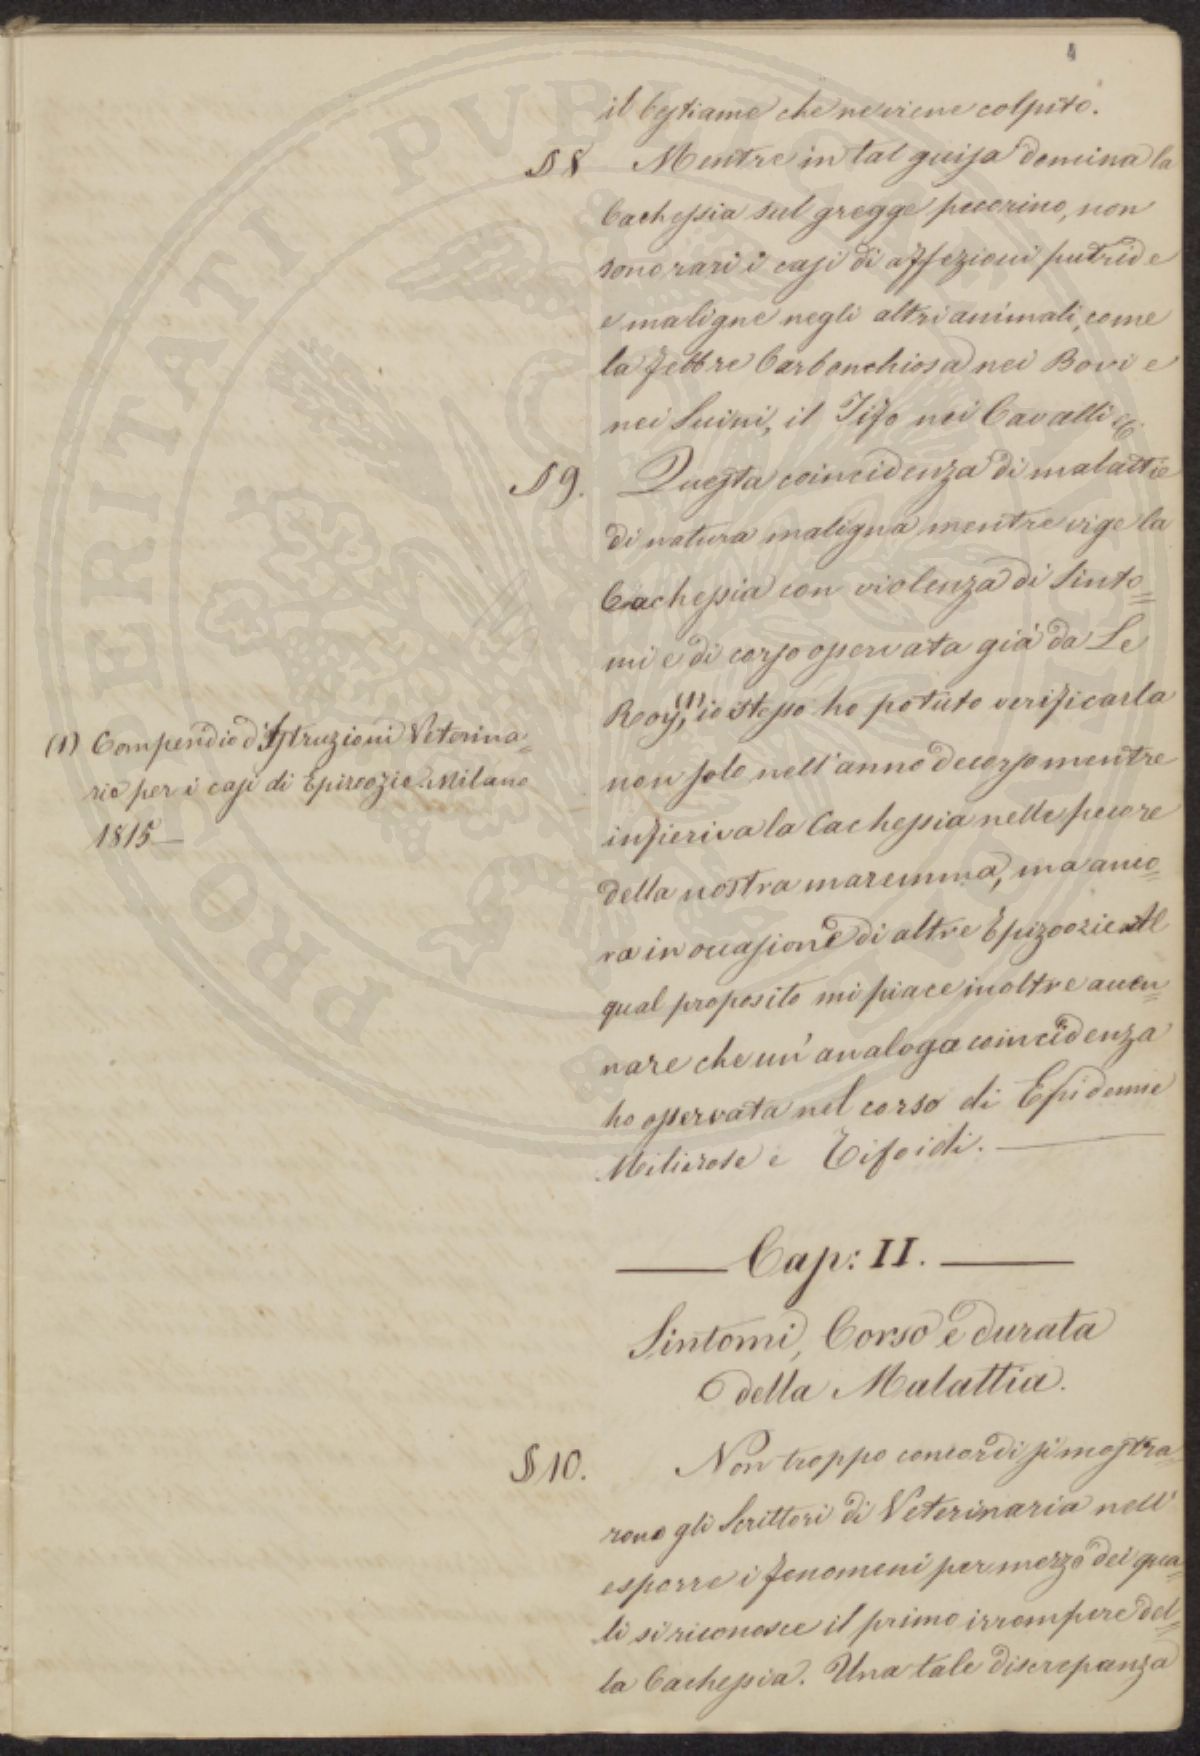 4
il bestiame che ne viene colpito.
§ 8 Mentre in tal guisa domina la
Cachessia sul gregge pecorino, non
sono rari i casi di affezioni putride
e maligne negli altri animali, come
la febbre Carbonchiosa nei Bovi e
nei Suini, il Tifo nei Cavalli &.
§ 9. Questa coincidenza di malattie
di natura maligna mentre vige la
Cachessia con violenza di Sinto=
mi e di corso osservata già da Le
Roy (1), io stesso ho potuto verificarla
non solo nell'anno decorso mentre
infieriva la Cachessia nelle pecore
della nostra maremma, ma anco=
ra in occasione di altre Epizoozie. Al
qual proposito mi piace inoltre accen=
nare che un' analoga coincidenza
ho osservata nel corso di Epidemie
Miliarose e Tifoidi.
(1) Compendio d'Istruzioni Veterina=
rie per i casi di Epizoozie. Milano
1815 —
Cap: II.
Sintomi, Corso e durata
della Malattia.
§ 10. Non troppo concordi si mostra=
rono gli Scrittori di Veterinaria nell'
esporre i fenomeni per mezzo dei qua=
li si riconosce il primo irrompere del=
la Cachessia. Una tale discrepanza
PROSPERITATI PUBLICAE